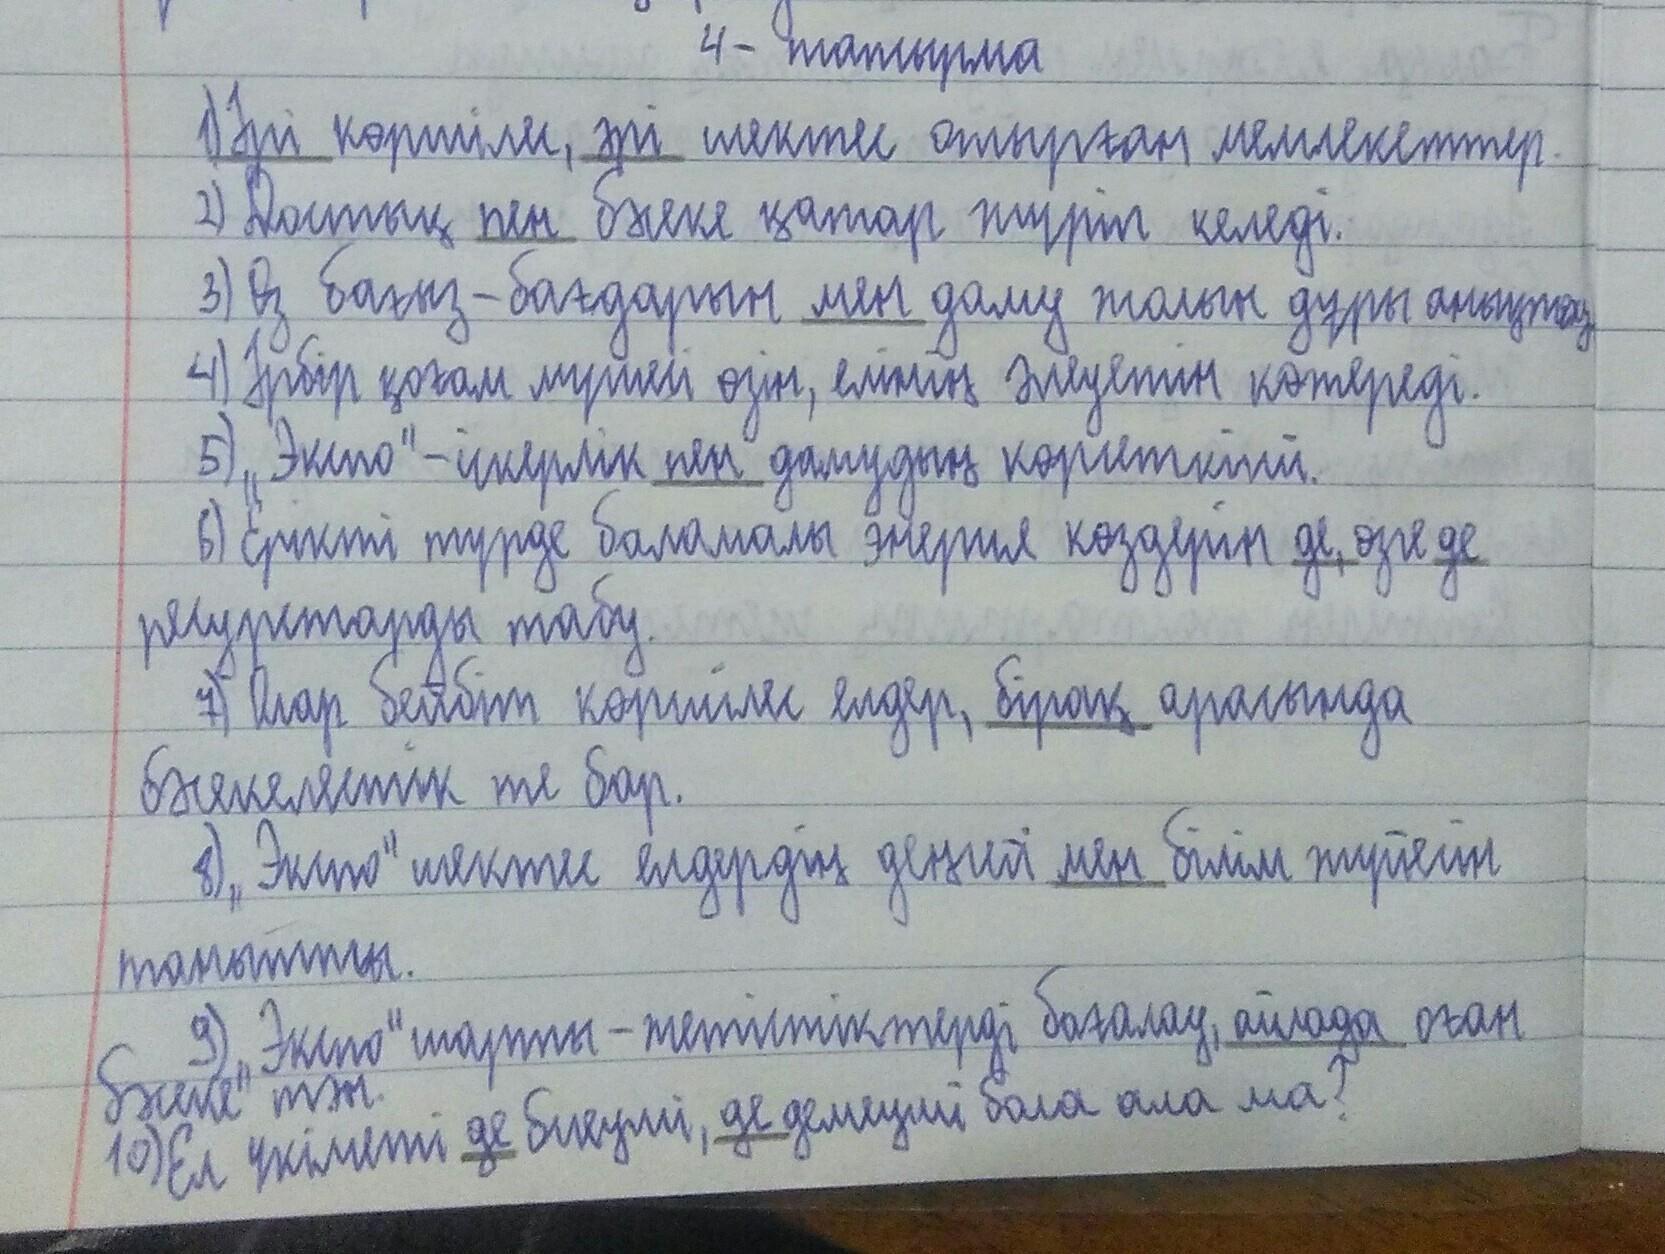 4 - тапсырма
1) Әрі көршілес, әрі шектес отырған мемлекеттер.
2) Достық пен бәсеке қатар жүріп келеді.
3) Өз бағыз-бағдарын мен даму жолын дұры анықтау
4) Әрбір қоғам мүшесі өзін, елінің әлеуетін көтереді.
5) „Экспо" - іскерлік пен дамудың көрсеткіші.
6) Ерікті түрде баламалы энергия көздерін де, өзге де
ресурстарды табу.
7) Олар бейбіт көршілес елдер, бірақ арасында
бәсекелестік те бар.
8) „Экспо" шектес елдердің деңгей мен білім жүйесін
танытты.
9) „Экспо" шарты - жетістіктерді бағалау, ойлада оған
бәсеке" тән.
10) Ел үкіметі де бәсеуші, де демеуші бола ала ма?